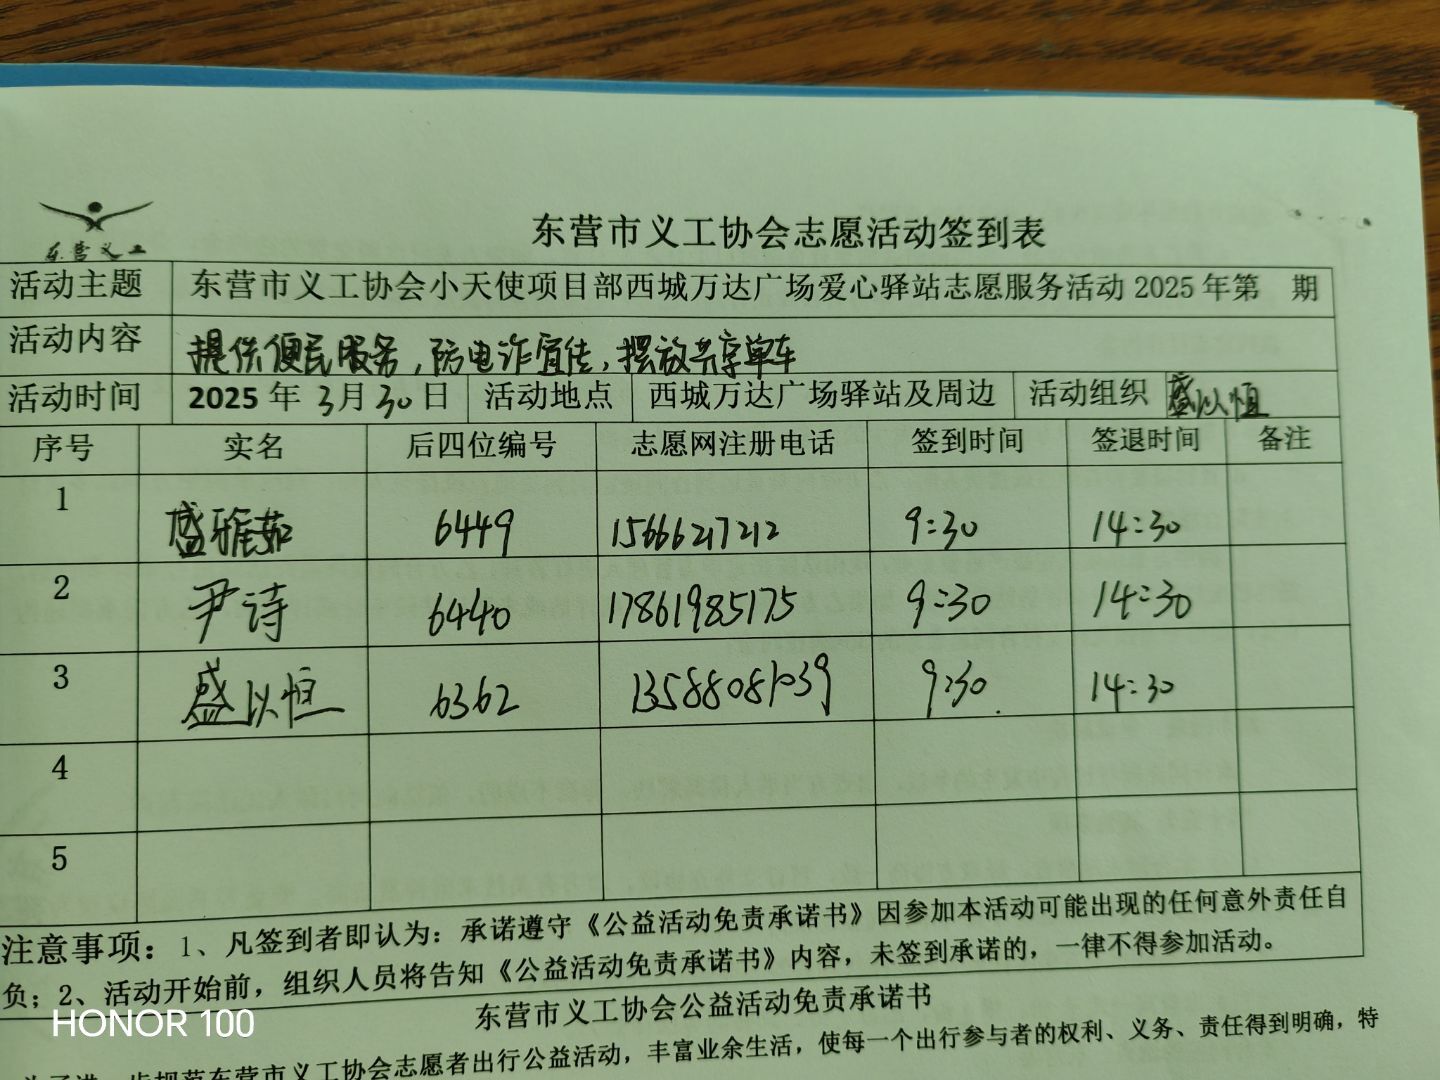 东营义工
东营市义工协会志愿活动签到表
活动主题 东营市义工协会小天使项目部西城万达广场爱心驿站志愿服务活动 2025 年第 期
活动内容 提供便民服务，防电诈宣传，摆放共享单车
活动时间 2025 年 3月 30 日 活动地点 西城万达广场驿站及周边 活动组织 盛以恒
序号 实名 后四位编号 志愿网注册电话 签到时间 签退时间 备注
1 盛雅茹 6449 15666217212 9:30 14:30
2 尹诗 6440 17861985175 9:30 14:30
3 盛以恒 6362 13588081039 9:30 14:30
4
5
注意事项：1、凡签到者即认为：承诺遵守《公益活动免责承诺书》因参加本活动可能出现的任何意外责任自
负；2、活动开始前，组织人员将告知《公益活动免责承诺书》内容，未签到承诺的，一律不得参加活动。
东营市义工协会公益活动免责承诺书
为了进一步规范东营市义工协会志愿者出行公益活动，丰富业余生活，使每一个出行参与者的权利、义务、责任得到明确，特
HONOR 100